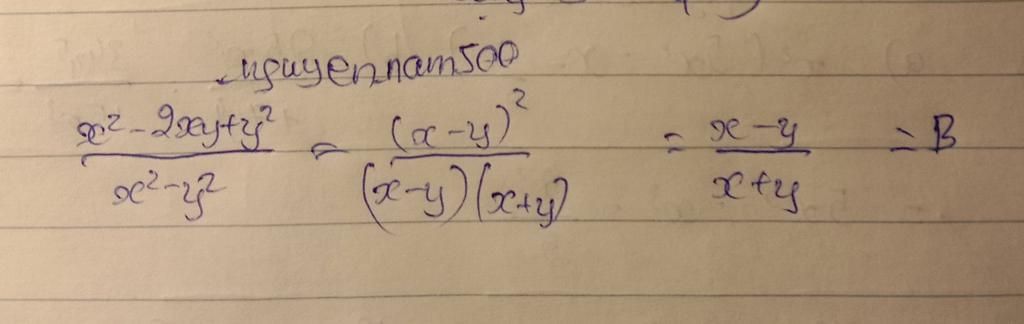 nguyennam500
x² - 2xy + y² / x² - y² = (x - y)² / (x - y)(x + y) = x - y / x + y = B